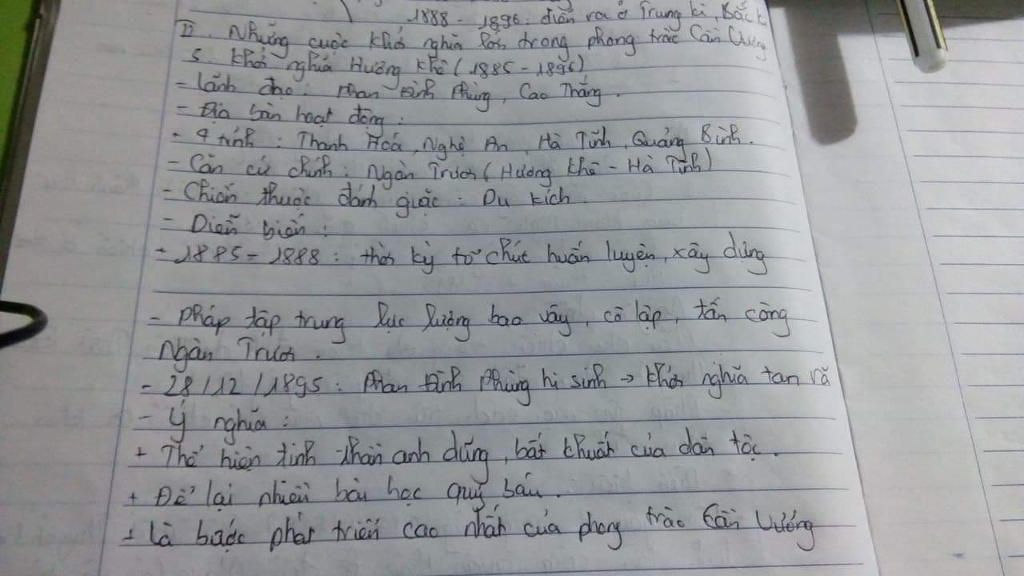 1888 - 1896: diễn ra ở Trung kì, Bắc k
II. Những cuộc khởi nghĩa lớn trong phong trào Cần Vương
5. Khởi nghĩa Hương Khê (1885 - 1896)
- Lãnh đạo: Phan Đình Phùng, Cao Thắng.
- Địa bàn hoạt động:
+ 4 tỉnh: Thanh Hoá, Nghệ An, Hà Tĩnh, Quảng Bình.
- Căn cứ chính: Ngàn Trươi (Hương Khê - Hà Tĩnh)
- Chiến thuộc đánh giặc: Du kích.
- Diễn biến:
+ 1885 - 1888: thời kỳ tổ chức huấn luyện, xây dựng
- Pháp tập trung lực lượng bao vây, cô lập, tấn công
Ngàn Trươi.
- 28/12/1895: Phan Đình Phùng hi sinh → khởi nghĩa tan rã
- Ý nghĩa:
+ Thể hiện tinh thần anh dũng, bất khuất của dân tộc.
+ Để lại nhiều bài học quý báu.
+ Là bước phát triển cao nhất của phong trào Cần Vương